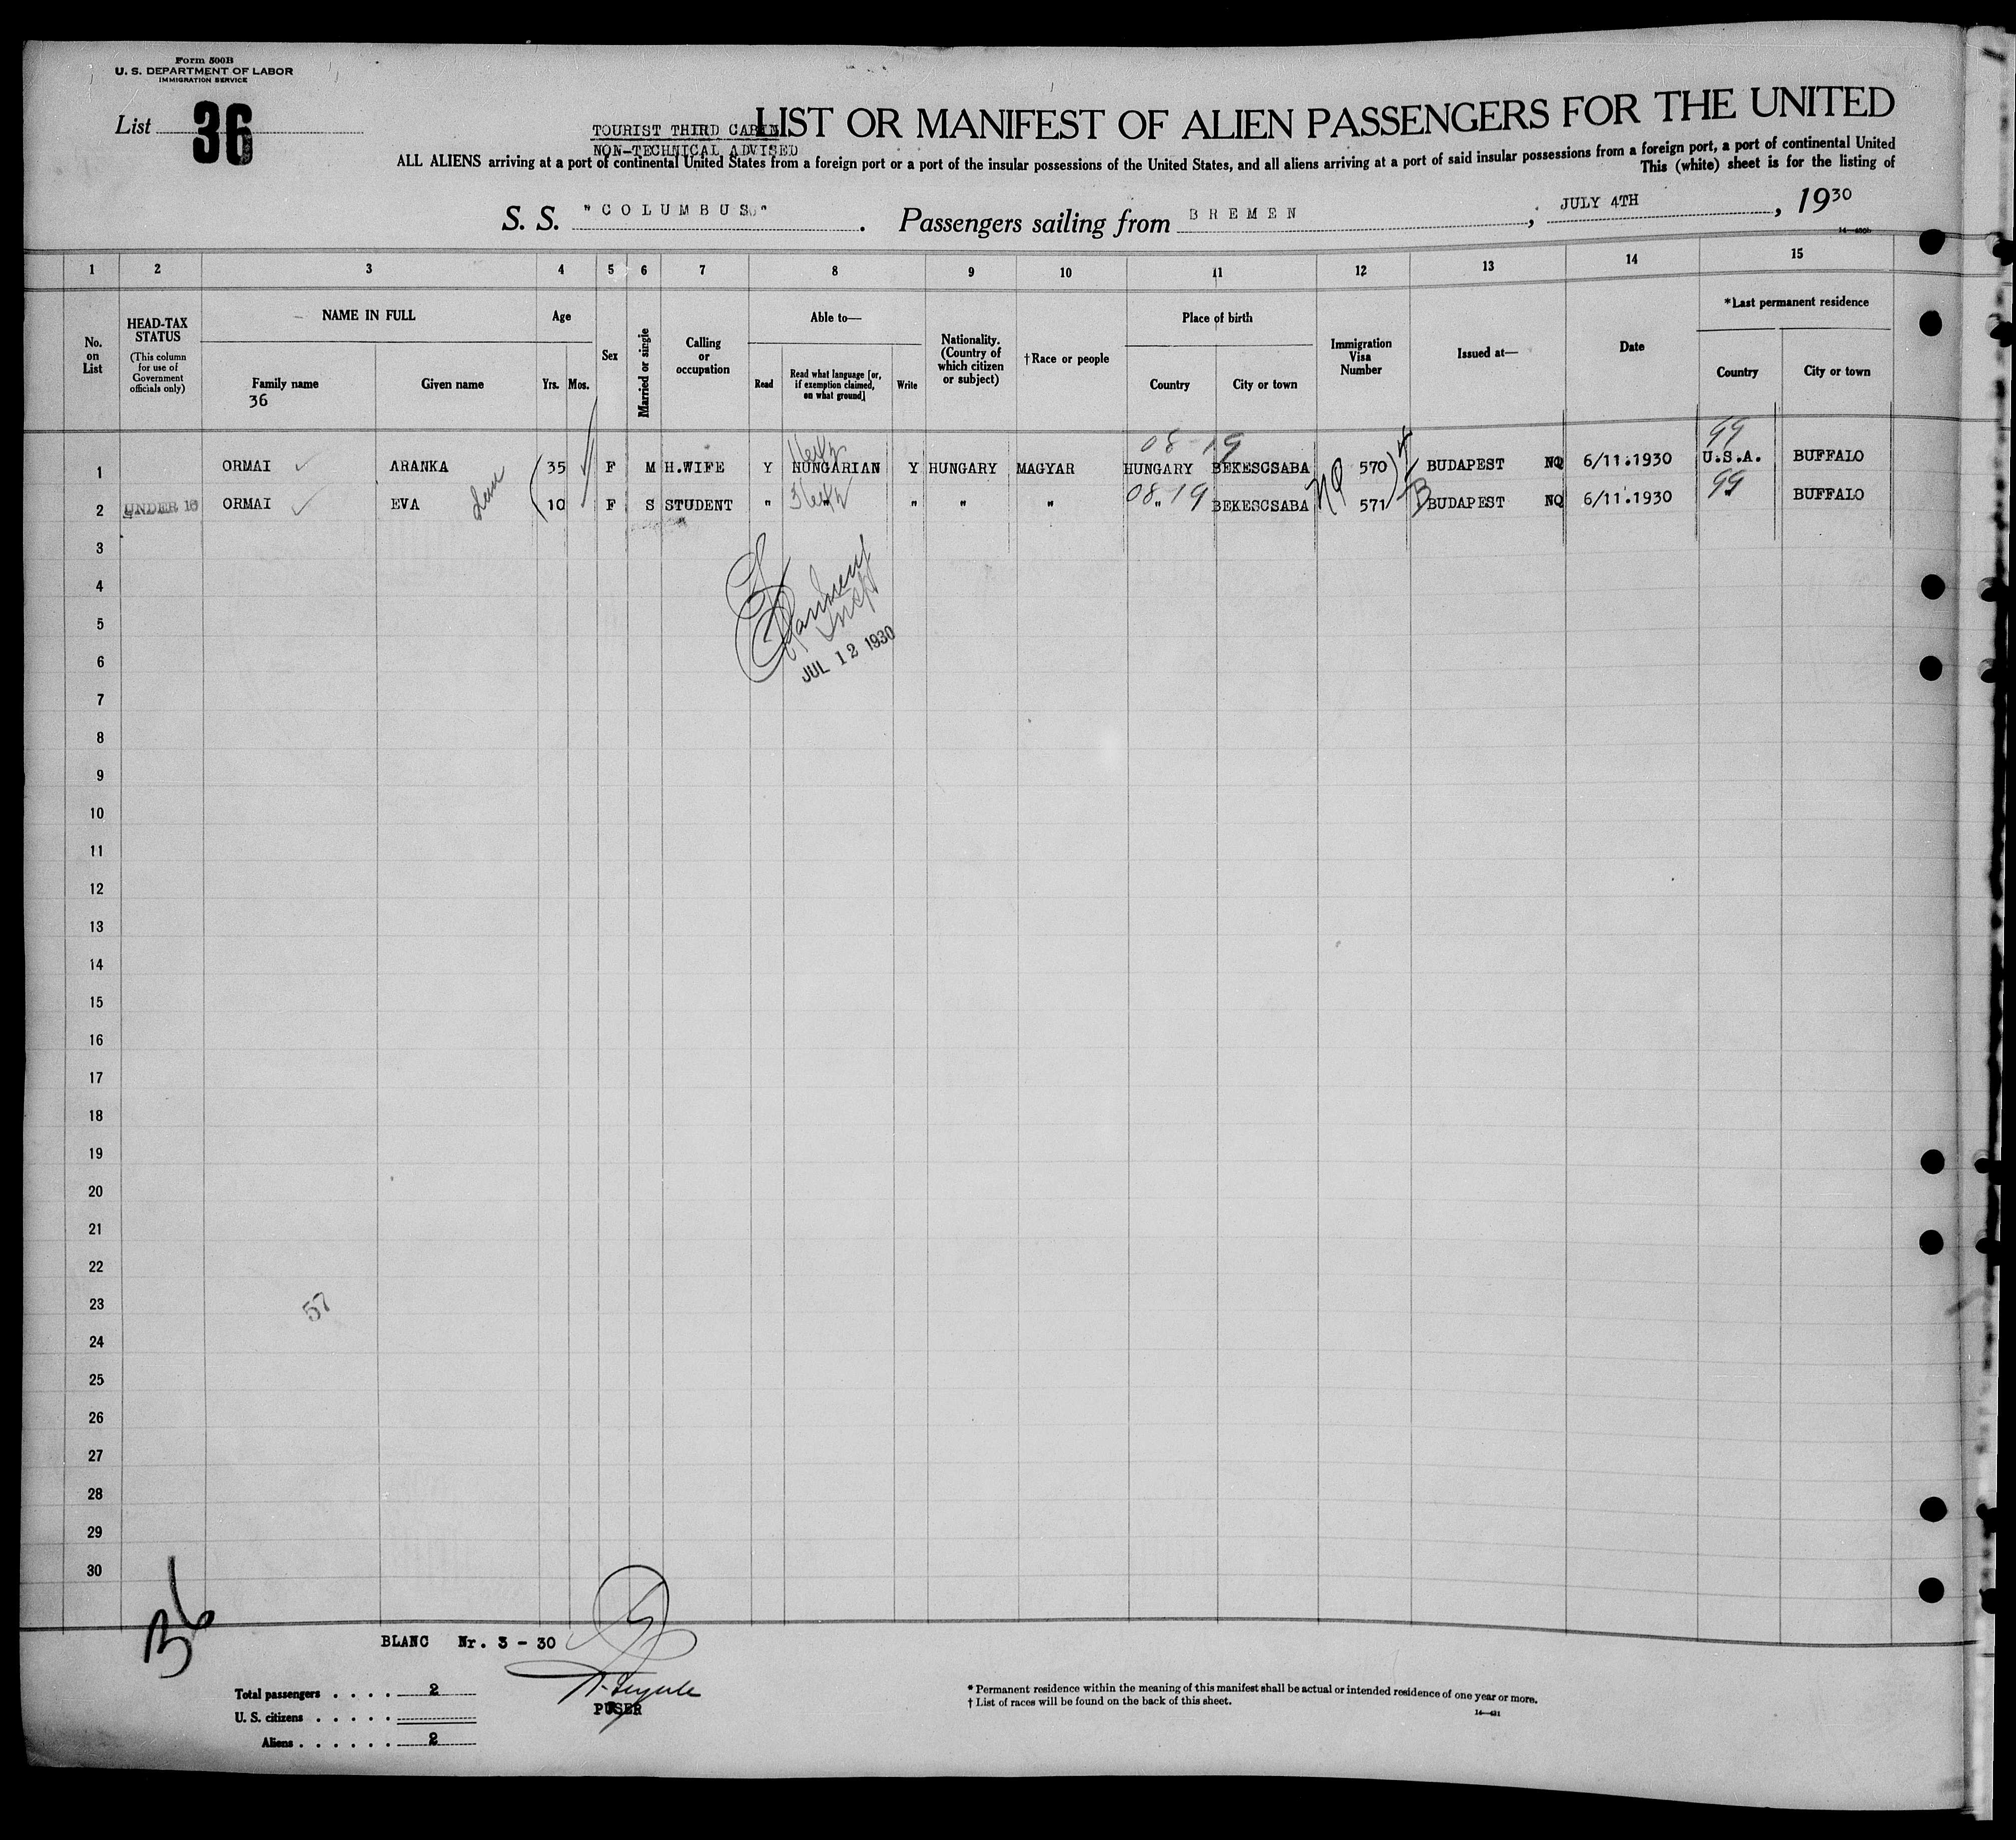 Form 500B
U. S. DEPARTMENT OF LABOR
IMMIGRATION SERVICE
List 36
TOURIST THIRD CABIN
NON-TECHNICAL ADVISED
LIST OR MANIFEST OF ALIEN PASSENGERS FOR THE UNITED
ALL ALIENS arriving at a port of continental United States from a foreign port or a port of the insular possessions of the United States, and all aliens arriving at a port of said insular possessions from a foreign port, a port of continental United
This (white) sheet is for the listing of
S. S. "COLUMBUS" . Passengers sailing from BREMEN , JULY 4TH , 1930
1 2 3 4 5 6 7 8 9 10 11 12 13 14 15
No. on List
HEAD-TAX STATUS
(This column for use of Government officials only)
NAME IN FULL
Family name
36
Given name
Age
Yrs. Mos.
Sex
Married or single
Calling or occupation
Able to—
Read
Read what language [or, if exemption claimed, on what ground]
Write
Nationality. (Country of which citizen or subject)
†Race or people
Place of birth
Country
City or town
Immigration Visa Number
Issued at—
Date
*Last permanent residence
Country
City or town
08-19 99
1 ORMAI ARANKA 35 F M H.WIFE Y HUNGARIAN Y HUNGARY MAGYAR HUNGARY BEKESCSABA 570 BUDAPEST NQ 6/11.1930 U.S.A. BUFFALO
08-19 99
2 UNDER 16 ORMAI EVA 10 F S STUDENT " " " " " BEKESCSABA NQ 571 BUDAPEST NQ 6/11.1930 " BUFFALO
3
4
5
Insp
6
JUL 12 1930
7
8
9
10
11
12
13
14
15
16
17
18
19
20
21
22
23
57
24
25
26
27
28
29
30
BLANC Nr. 3 - 30
Total passengers . . . . 2
U. S. citizens . . . . .
Aliens . . . . . . 2
PUSER
* Permanent residence within the meaning of this manifest shall be actual or intended residence of one year or more.
† List of races will be found on the back of this sheet.